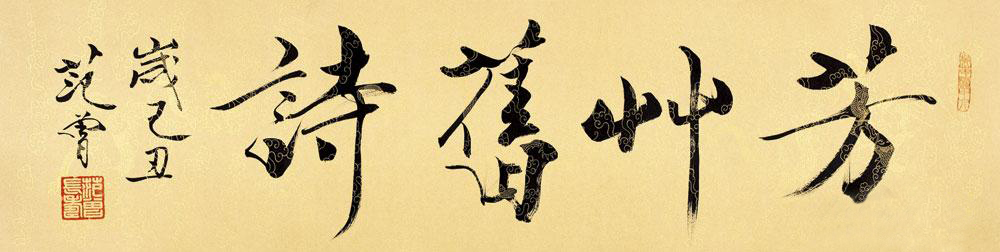 芳艸舊詩
歲己丑
范曾